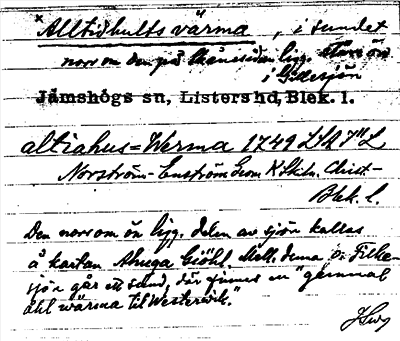 *Alltidhults värma, i sundet
norr om den på Skånesidan ligg. stora ön
i Gidesjön
Jämshögs sn, Listers hd, Blek. l.
altiahus=Werma 1749
Norström-Enström Geom. Christ-
Blek. l.
Den norr om ön ligg. delen av sjön kallas
å kartan Abuga Giöhl. Mell. denna o. Filke-
sjön går ett sund, där finnes en "gammal
åhl wärma til Westerwik."